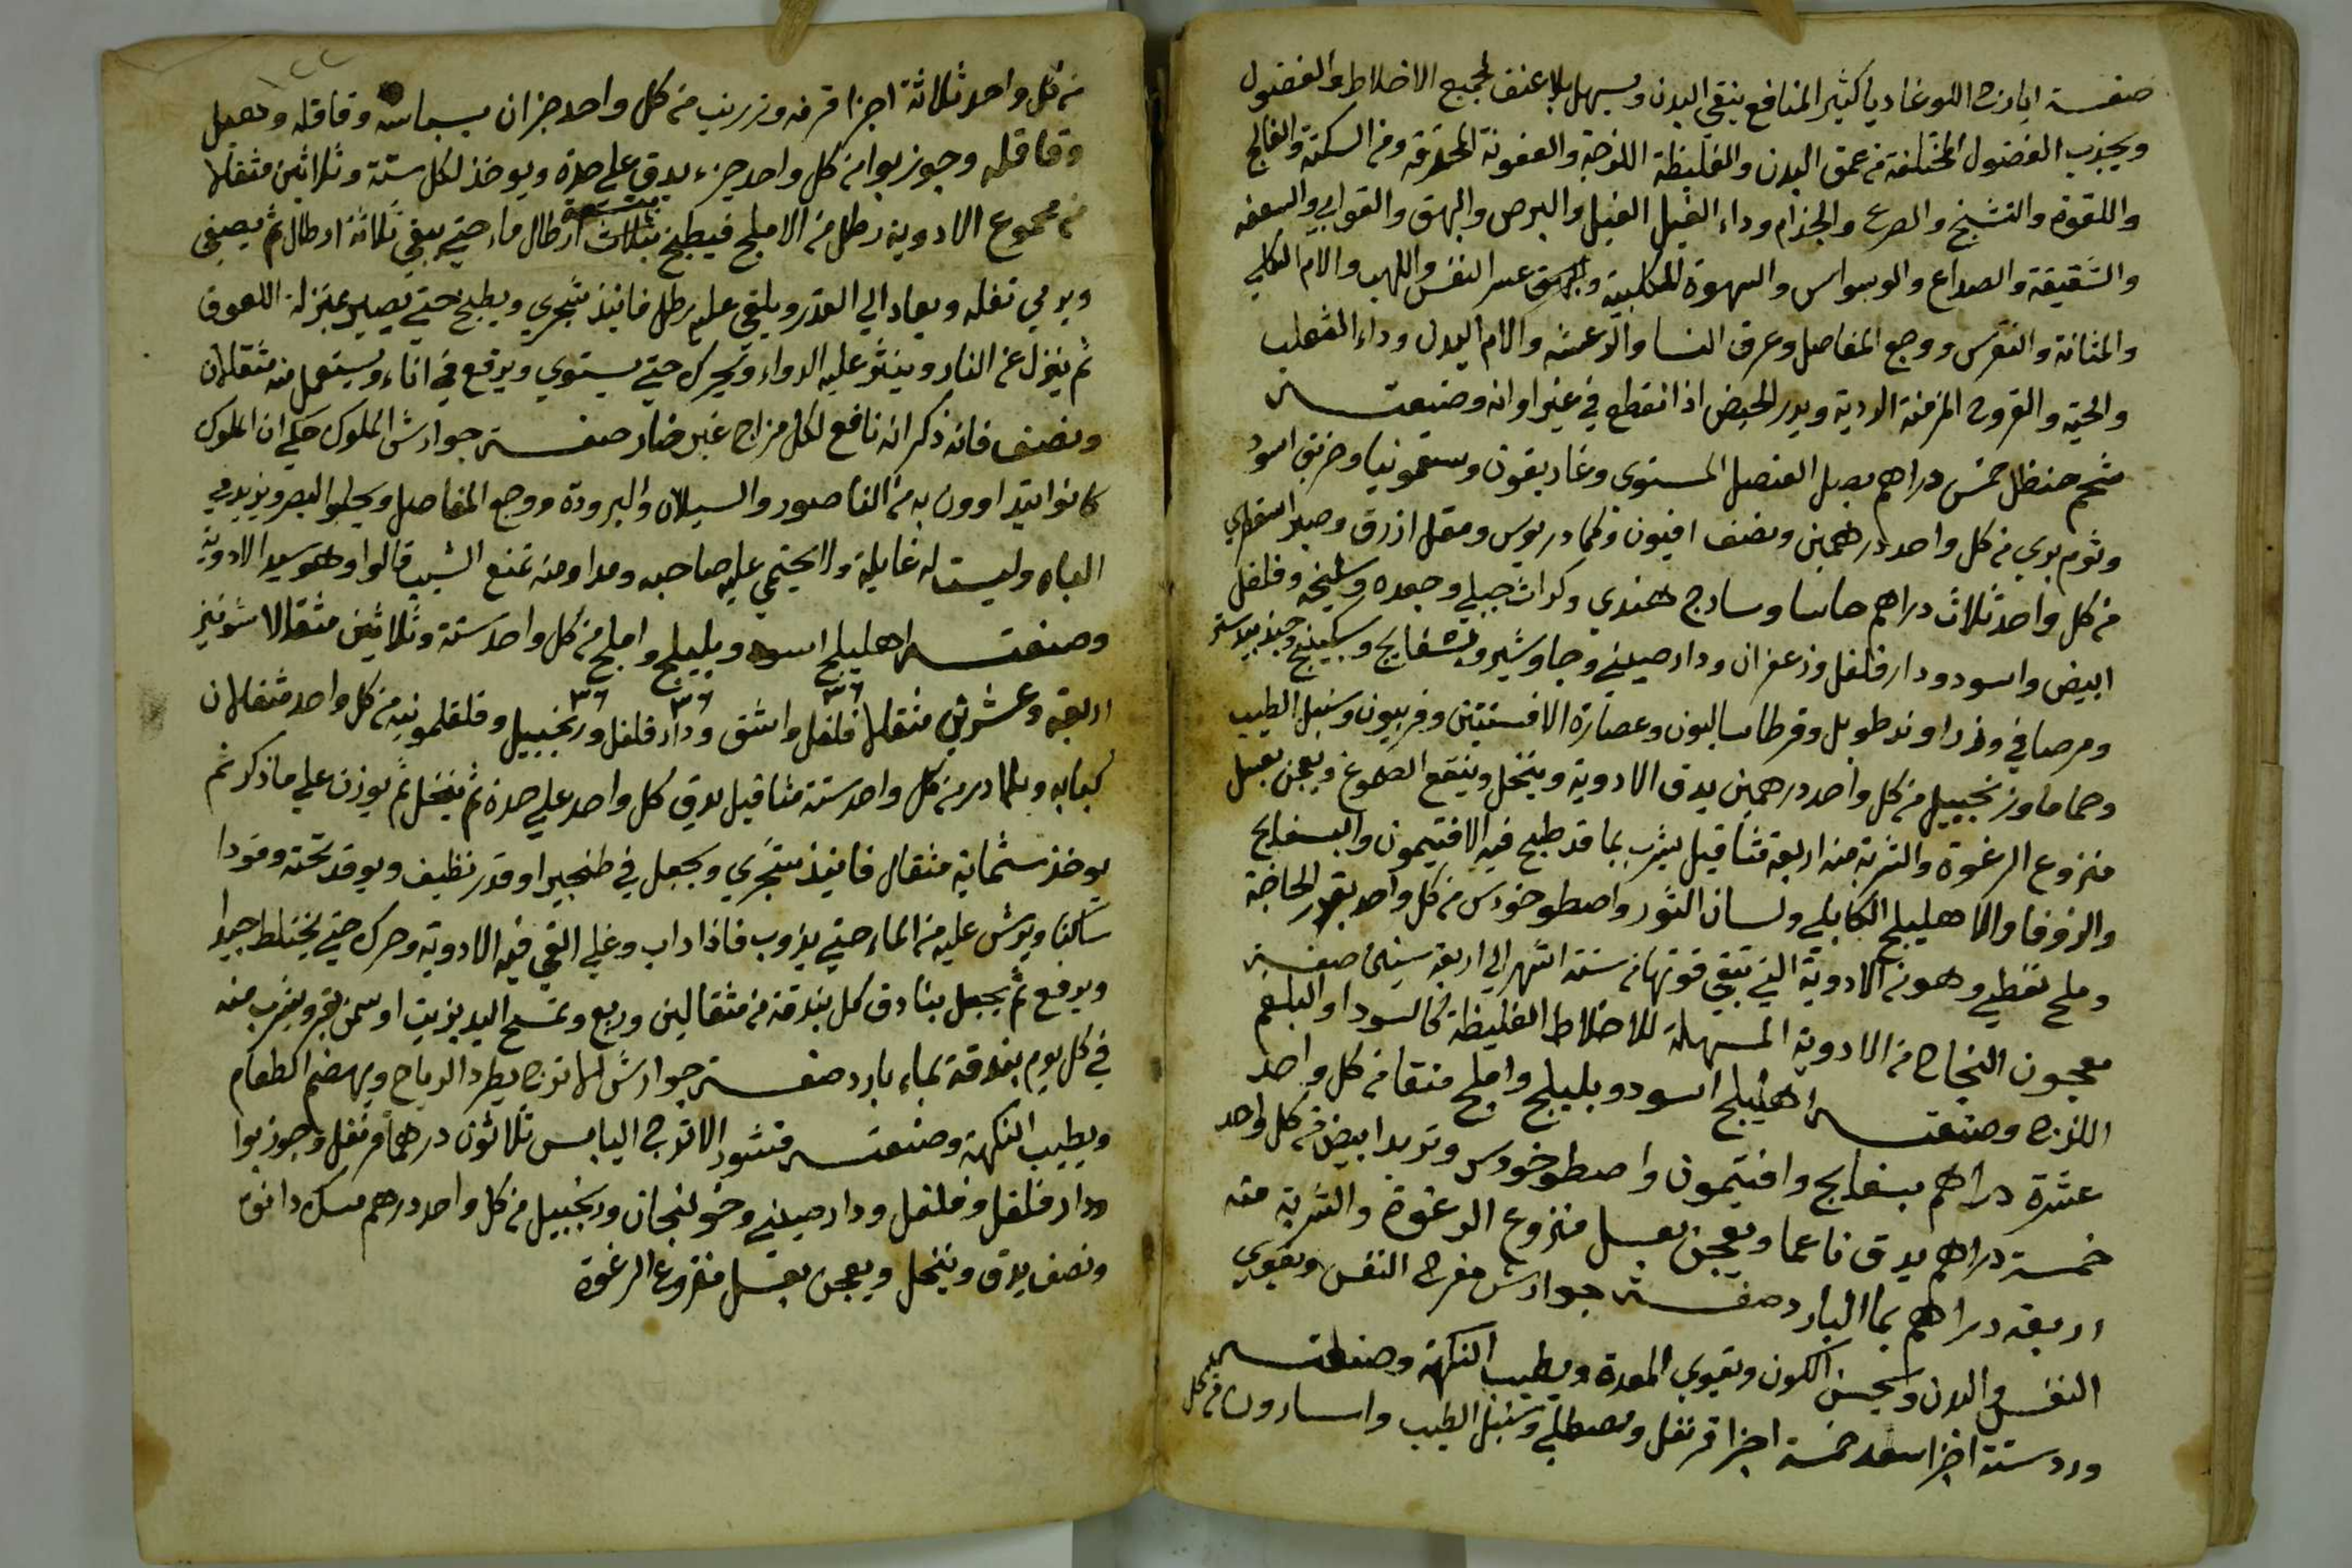 صفة ايارج اللوغاديا كثير المنافع ينقي البدن ويسهل بلا عنف لجميع الاخلاط والفضول
ويجذب الفضول المختلفة من عمق البدن والغليظة اللزجة والعفونة المحترقة ومن السكتة والفالج
واللقوة والتشنج والصرع والجذام وداء الفيل الفيل والبرص والبهق والقوابي والسعفه
والشقيقة والصداع والوسواس والشهوة الكلبية عسر النفس واللهب والام الكلي
والمثانة والنقرس ووجع المفاصل وعرق النسا والرعشه والام البدن وداء الثعلب
والحية والقروح المزمنة الردية ويدر الحيض اذا انقطع في غير اوانه وصنعتـــه
شحم حنظل خمس دراهم بصل العنصل المشوى وغاريقون وسقمونيا وخربق اسود
وثوم بري من كل واحد درهمين ونصف افيون وكمادريوس ومقل ازرق وصبر اسقطري
من كل واحد ثلاث دراهم حاشا وسادج هندي وكراث جبلي وجعده وسليخه وفلفل
ابيض واسود ودار فلفل وزعفران ودار صيني وجاوشير وبسفايج وسكبينج وجندبيدستر
ومر صافي وزراوند طويل وقرطاساليون وعصارة الافسنتين وفربيون وسنبل الطيب
وحماما وزنجبيل من كل واحد درهمين يدق الادوية وينخل وينقع الصموغ ويعجن بعسل
منزوع الرغوة والشربة منه اربعة مثاقيل يشرب بما قد طبخ فيه الافتيمون والبسفايج
والزوفا والاهليلج الكابلي ولسان الثور واصطوخودس من كل واحد بقدر الحاجة
وملح نفطي وهو من الادوية التي تبقي قوتها من ستة اشهر الي اربعة سنين صفـــة
معجون النجاح من الادوية المسهلة للاخلاط الغليظة كالسودا والبلغم
اللزج وصنعتـــه اهليلج اسود وبليلج واملج منقا من كل واحد
عشرة دراهم بسفايج وافتيمون واصطوخودس وتربد ابيض من كل واحد
خمسة دراهم يدق ناعما ويعجن بعسل منزوع الرغوة والشربة منه
اربعة دراهم بما البارد صفـــة جوارش مفرح النفس ويقوي
النفس والبدن ويحسن اللون ويقوي المعدة ويطيب النكهة وصنعتـــه
ورد ستة اجزا سعد خمسة اجزا قرنفل ومصطكي وسنبل الطيب واسارون من كل
من كل واحد ثلاثة اجزا قرفه وزرنب من كل واحد جزان بسباسه وقاقله وهيل
وقاقله وجوزبوا من كل واحد جزء يدق علي حدة ويوخذ لكل ستة وثلاثين مثقالا
من مجموع الادوية رطل من الاملج فيطبخ بتسعة ارطال ماء حتي يبقي ثلاثة ارطال ثم يصفي
ويرمي ثفله ويعاد الي القدر ويلقي عليه رطل فانيذ سجزي ويطبخ حتي يصير بمنزلة اللعوق
ثم ينزل عن النار وينثر عليه الدواء ويحرك حتي يستوي ويرفع في اناء ويستعمل منه مثقالان
ونصف فانه ذكر انه نافع لكل مزاج غير ضار صفـــة جوارش الملوك حكي ان الملوك
كانوا يتداوون به من الناصور والسيلان والبرودة ووجع المفاصل ويجلوا البصر ويزيد في
الباه وليست له غايلة ولا يحتمي عليه صاحبه ومداومته تمنع الشيب قالوا وهو سيد الادوية
وصنعتـــه اهليلج اسود وبليلج واملج من كل واحد ستة وثلاثين مثقالا شونيز
اربعة وعشرين مثقالا فلفل واشق ودار فلفل وزنجبيل وفلفلمونيه من كل واحد مثقالان
٣٦ ٣٦ ٣٦
كبابه وبلادر من كل واحد ستة مثاقيل يدق كل واحد علي حدة ثم ينخل ثم يوزن علي ما ذكر ثم
يوخذ ستماية مثقال فانيذ سجزي ويجعل في طنجير او قدر نظيف ويوقد تحته وقودا
ساكنا ويرش عليه من الماء حتي يذوب فاذا داب وغلي القي فيه الادوية وحرك حتي يختلط جيدا
ويرفع ثم يجعل بنادق كل بندقة من مثقالين وربع وتمسح اليد بزيت او سمن بقر ويشرب منه
في كل يوم بندقة بماء بارد صفـــة جوارش الاترج يطرد الرياح ويهضم الطعام
ويطيب النكهة وصنعتـــه قشور الاترج اليابس ثلاثون درهما قرنفل وجوزبوا
ودار فلفل وفلفل ودار صيني وخولنجان وزنجبيل من كل واحد درهم مسك دانق
ونصف يدق وينخل ويعجن بعسل منزوع الرغوة